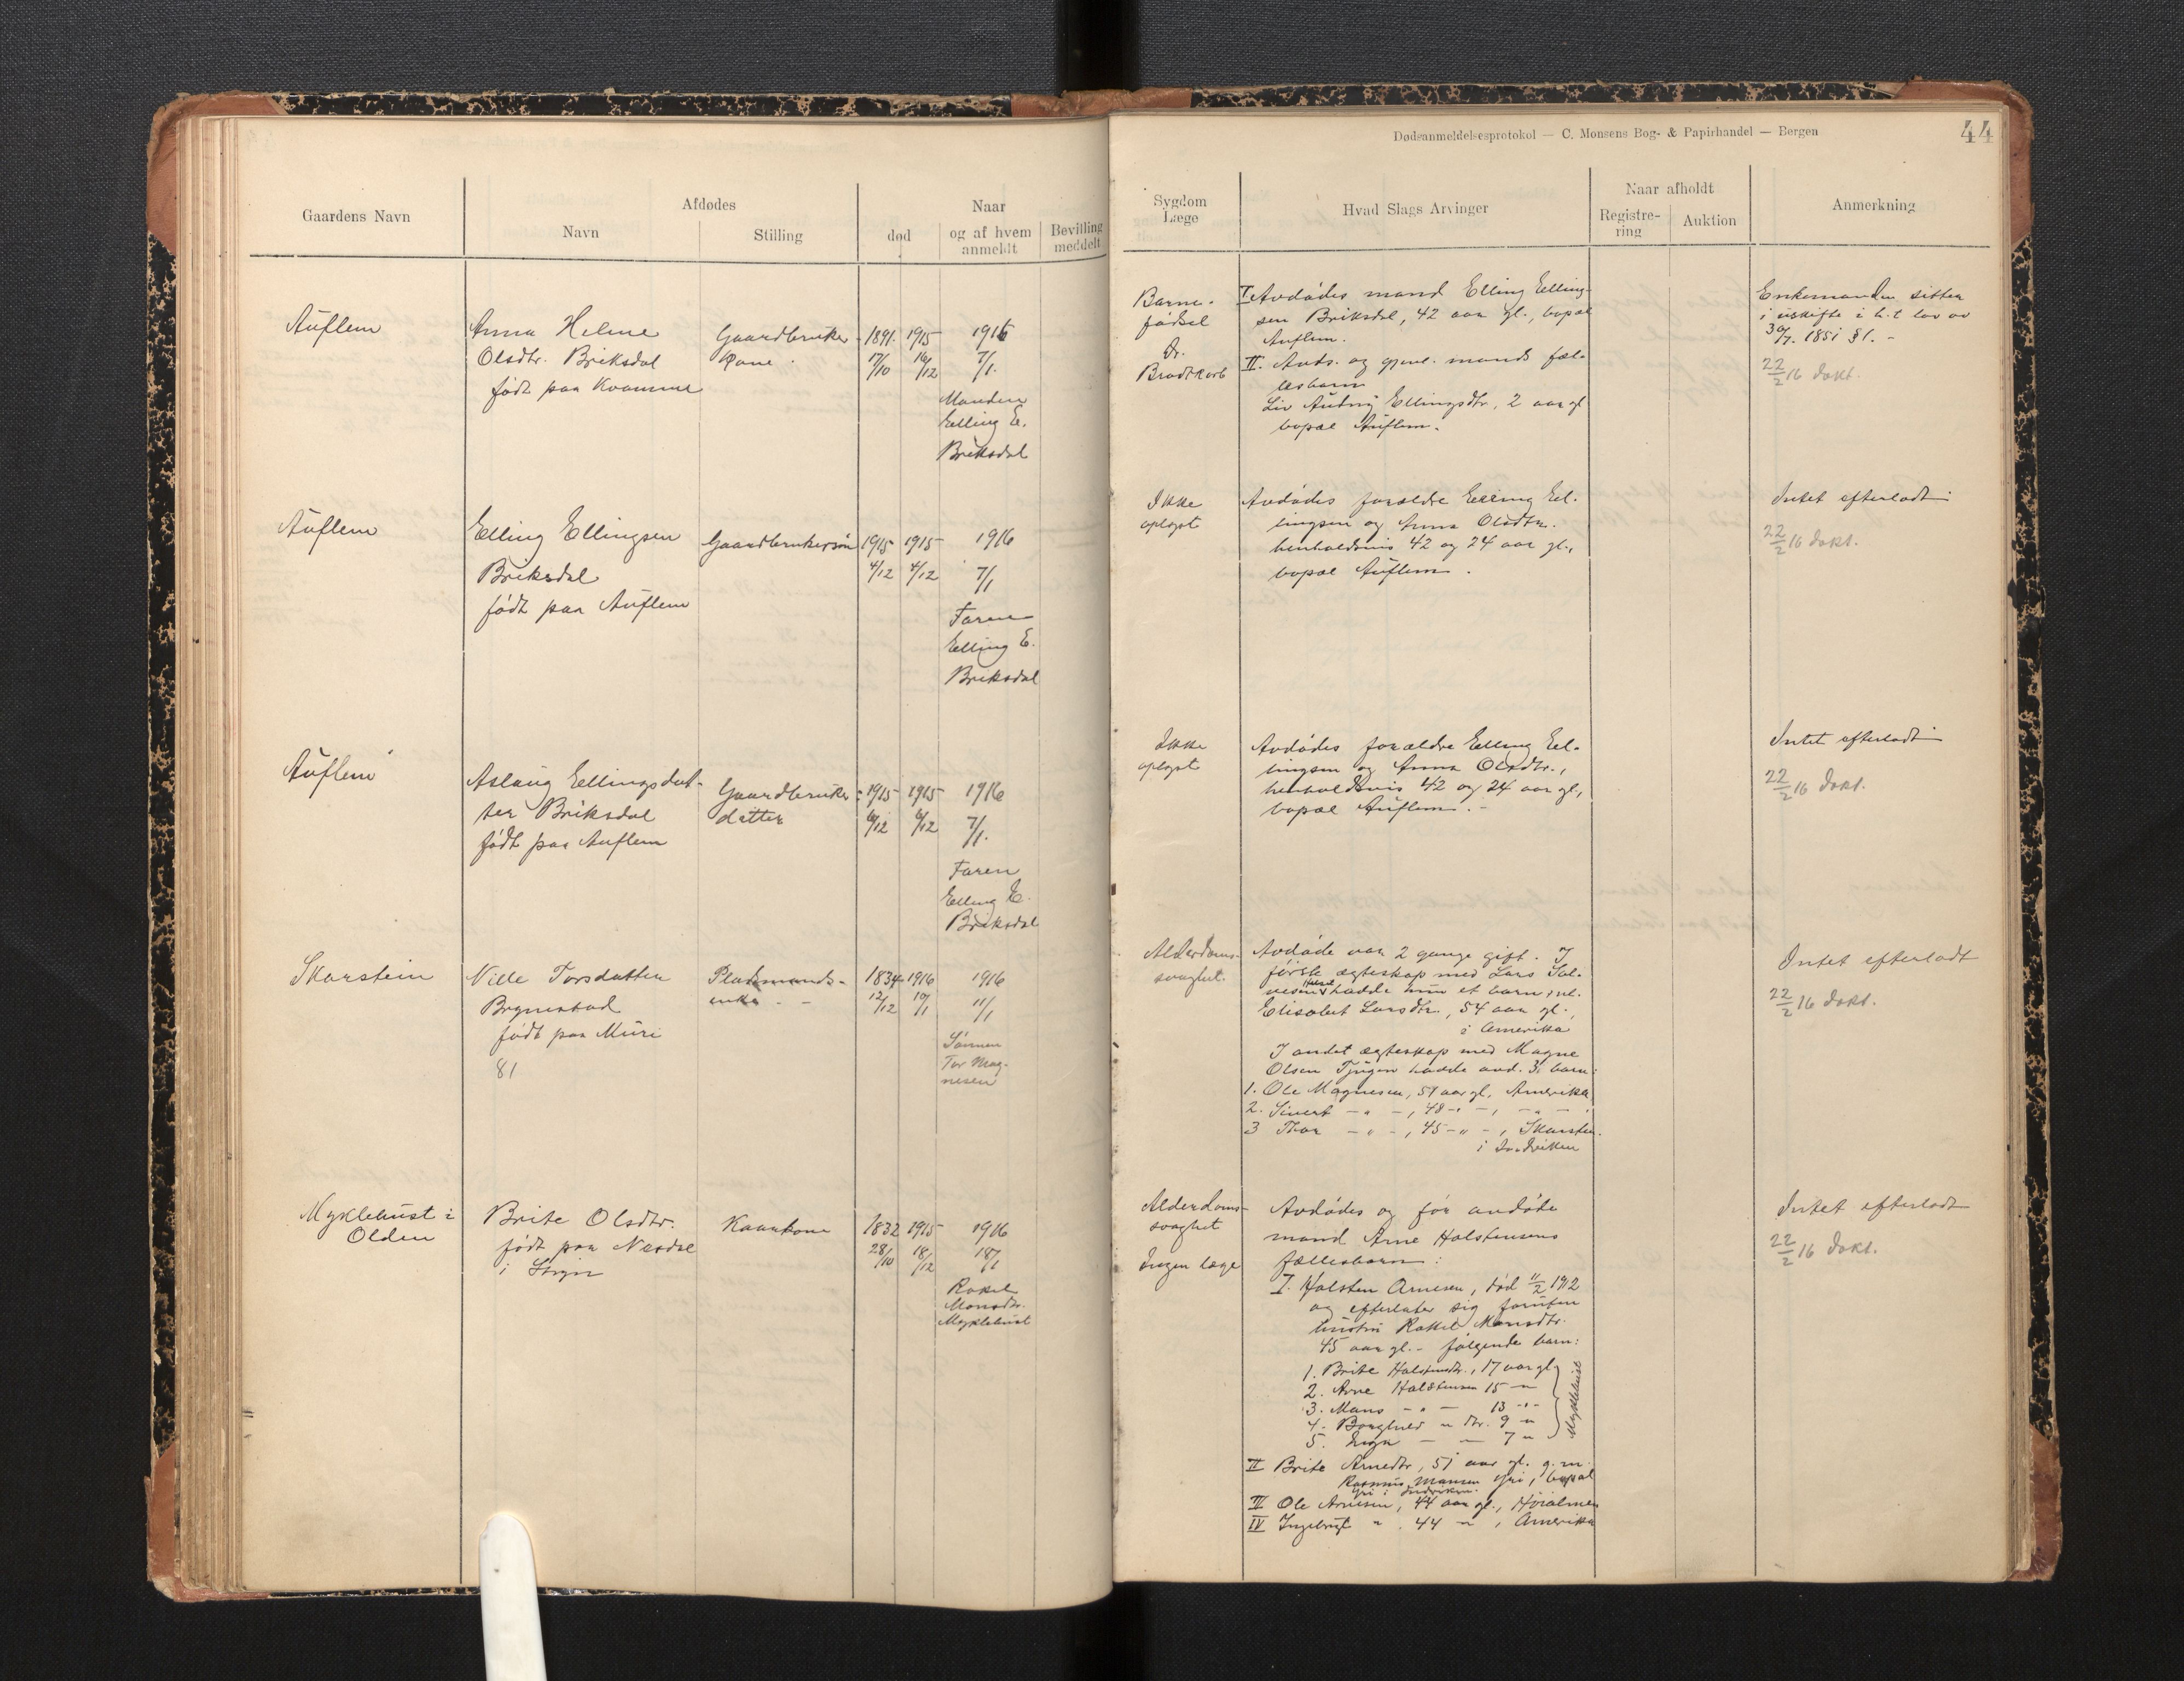 Dødsanmeldelsesprotokol — C. Monsens Bog- & Papirhandel — Bergen
44
Gaardens Navn
Afdødes
Navn
Stilling
Naar
død
og af hvem
anmeldt
Bevilling
meddelt
Sygdom
Læge
Hvad Slags Arvinger
Naar afholdt
Registre-
ring
Auktion
Anmerkning
Auflem
Anna Helene
Olsdtr. Briksdal
født paa Kvamme
Gaardbruker
kone
1891.
17/10
1915
16/12
1916
7/1.
Manden
Elling E.
Briksdal
Barne-
fødsel
Dr.
Bradtkorb
I Avdødes mand Elling Elling-
sen Briksdal, 42 aar gl., bopæl
Auflem.
II. Avds. og gjenl. mands fæl-
lesbarn
Liv Audny Ellingsdtr, 2 aar gl
bopæl Auflem.
Enkemanden sitter
i uskifte i h.t lov av
30/7. 1851 §1. -
22/2 16 Dokt.
Auflem
Elling Ellingsen
Briksdal
født paa Auflem
Gaardbrukersøn
1915
4/12
1915
4/12
1916
7/1
Faren
Elling E.
Briksdal
Ikke
oplyst
Avdødes forældre Elling El-
lingsen og Anna Olsdtr.
henholdsvis 42 og 24 aar gl.,
bopæl Auflem.
Intet efterladt
22/2 16 Dokt.
Auflem
Aslaug Ellingsdat-
ter Briksdal
født paa Auflem
Gaardbruker
datter
1915
6/12
1915
6/12
1916
7/1.
Faren
Elling E.
Briksdal
Ikke
oplyst
Avdødes forældre Elling El-
lingsen og Anna Olsdtr.,
henholdsvis 42 og 24 aar gl,
bopæl Auflem. -
Intet efterladt
22/2 16 Dokt.
Skarstein
Ville Torsdatter
Brynestad
født paa Muri
81
Pladsmands-
enke - -
1834
12/12
1916
10/1
1916
11/1
Sønnen
Tor Mag-
nesen
Alderdoms-
svaghet.
Avdøde var 2 gange gift. I
første ægteskap med Lars
hadde hun et barn, nl.
Elisabet Larsdtr., 54 aar gl.,
i Amerika
I andet ægteskap med Magne
Olsen Tjugen hadde avd. 3 barn:
1. Ole Magnesen, 51 aar gl. Amerika
2. Sivert - " -, 48 - " -, - " -
3 Thor - " -, 45 - " -, Skarsten
i Indviken
Intet efterladt
22/2 16 Dokt.
Myklebust i
Olden
Brite Olsdtr.
født paa Nesdal
i Stryn
Kaarkone
1832
28/10
1915
18/12
1916
18/1
Rakel
Monsdtr.
Myklebust
Alderdoms-
svaghet
Ingen læge
Avdødes og før avdøde
mand Arne Holstensens
fællesbarn:
I. Holsten Arnesen, død 11/2 1912
og efterlater sig foruten
hustru Rakel Monsdtr.
45 aar gl. - følgende barn:
1. Brite Holstendtr., 17 aar gl
2. Arne Holstensen 15 - "
3. Mons - " - 13 - " -
4. Borghild " dtr. 9 "
5. Inga - - 7 "
Myklebust
II Brite Arnedtr, 51 aar gl. g. m.
Rasmus Monsen Hjri, bopæl
i Indviken.
III Ole Arnesen, 44 aar gl.,
IV Ingebrigt " , 44 " , Amerika
Intet efterladt
22/2 16 Dokt.